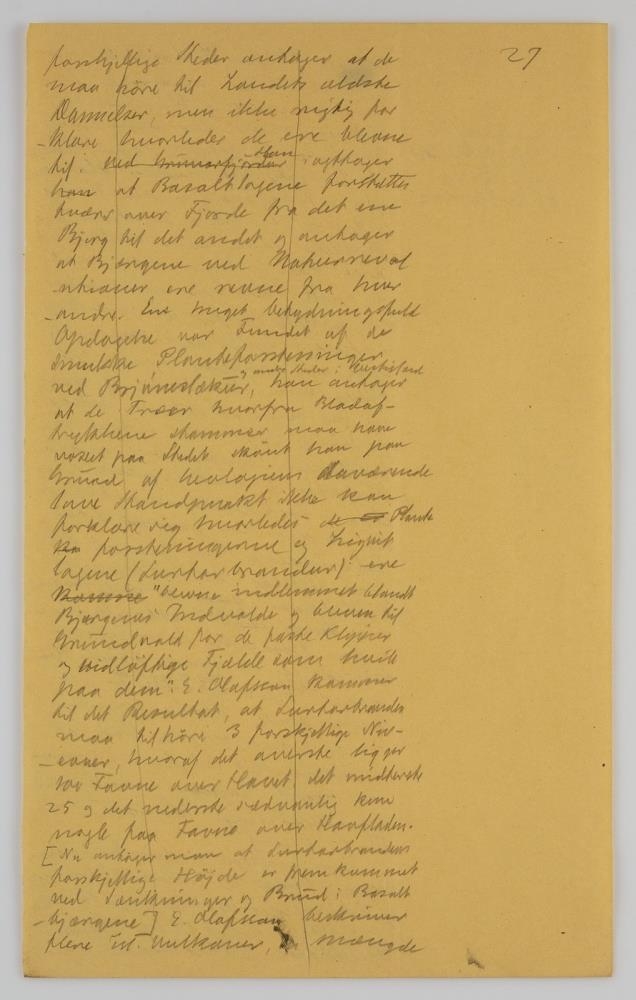 27
forskjellige Steder antager at de
maa höre til Landets ældste
Dannelser, men ikke rigtig for
klare hvorledes de ere blevne
til. Han iagttager
at Basaltlagene fortsættes
tværs over Fjorde fra det ene
Bjerg til det andet og antager
at Bjærgene ved
ere revne fra hver
andre. En meget betydningsfuld
Opdagelse var Fundet af de
smukke Planteforsteninger
ved Brjámslækur, og andre Steder i
han antager
at de Træer hvorfra Bladaf-
trykkene stammer maa have
voxet paa Stedet skönt han paa
Grund af Geologiens daværende
lave Standpunkt ikke kan
forklare sig hvorledes Plante
forsteningerne og Lignit
lagene (Surtarbrandur) ere
"blevne indklemmet blandt
Bjærgenes Indvolde og bleven til
Grundvold for de faste Klipper
og vidløftige Fjelde som hvile
paa dem". E. Olafsson kommer
til det Resultat, at Surtarbranden
maa tilhöre 3 forskjellige Niv-
eauer, hvoraf det øverste ligger
100 Favne over Havet det midterste
25 og det nederste sædvanlig kun
nogle faa Favne over Havfladen.
[Nu antager man at Surtarbrandens
forskjellige Højde er fremkommet
ved Sænkninger og Brud i Basalt
bjærgene] E. Olafsson beskriver
flere isl. Vulkaner, mængde